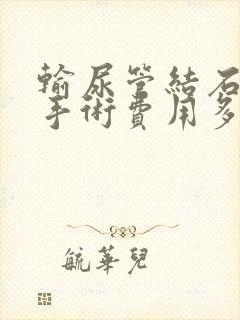 輸尿管結石
手術費用多
毓華兒